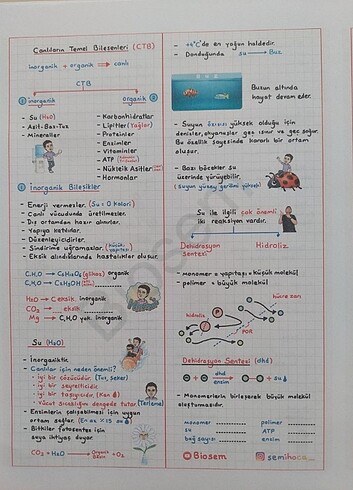 Canlıların Temel Bileşenleri (CTB)
inorganik + organik → canlı
CTB
① inorganik
organik ②
- Su (H₂O)
- Asit-Baz-Tuz
- Mineraller
- Karbonhidratlar
- Lipitler (Yağlar)
- Proteinler
- Enzimler
- Vitaminler
- ATP
- Nükleik Asitler
- Hormonlar
① İnorganik Bileşikler
- Enerji vermezler. (Su = 0 kalori)
- Canlı vücudunda üretilmezler.
- Dış ortamdan hazır alınırlar.
- Yapıya katılırlar.
- Düzenleyicidirler.
- Sindirime uğramazlar.
- Eksik alındıklarında hastalıklar oluşur.
C,H,O → C₆H₁₂O₆ (glikoz) organik
C,H,O → C₂H₅OH
H₂O → C eksik. inorganik
CO₂ → eksik
Mg → C,H,O yok. inorganik
Su (H₂O)
- İnorganiktir.
- Canlılar için neden önemli?
- iyi bir çözücüdür. (Tuz, şeker)
- iyi bir seyrelticidir.
- iyi bir taşıyıcıdır. (Kan)
- Vücut sıcaklığını dengede tutar. (Terleme)
- Enzimlerin çalışabilmesi için uygun
ortam sağlar. (En az %15 su)
- Bitkiler fotosentez için
suya ihtiyaç duyar.
CO₂ + H₂O → Organik Besin + O₂
- +4°C'de en yoğun haldedir.
- Donduğunda su → Buz
Buzun altında
hayat devam eder.
- Suyun özısısı yüksek olduğu için
denizler, okyanuslar geç ısınır ve geç soğur.
Bu özellik sayesinde kararlı bir ortam
oluşur.
- Bazı böcekler su
üzerinde yürüyebilir.
(Suyun yüzey gerilimi yüksek)
Su ile ilgili çok önemli
iki reaksiyon vardır.
Dehidrasyon
Sentezi
Hidroliz
- monomer = yapıtaşı = küçük molekül
- polimer = büyük molekül
hücre zarı
hidroliz
P
POR
Dehidrasyon Sentezi (dhd)
+ dhd enzim + su
- Monomerlerin birleşerek büyük molekül
oluşturmasıdır.
monomer
su
bağ sayısı
polimer
ATP
enzim
Biosem
semihoca